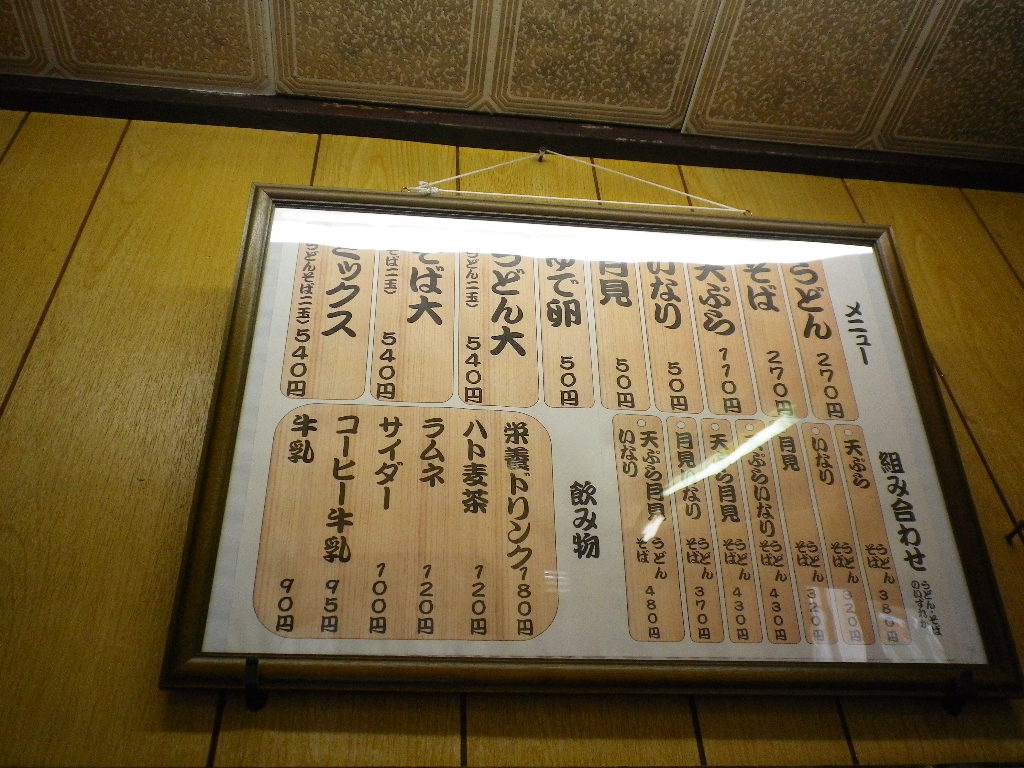 メニュー
うどん 270円
そば 270円
天ぷら 110円
いなり 50円
月見 50円
ゆで卵 50円
うどん大 うどん二玉) 540円
そば大 そば二玉) 540円
ミックス うどんそば二玉) 540円
組み合わせ
うどん・そば
のいずれか
天ぷら うどん そば 380円
いなり うどん そば 320円
月見 うどん そば 320円
天ぷらいなり うどん そば 430円
天ぷら月見 うどん そば 430円
月見いなり うどん そば 370円
天ぷら月見 いなり うどん そば 480円
飲み物
栄養ドリンク 180円
ハト麦茶 120円
ラムネ 120円
サイダー 100円
コーヒー牛乳 95円
牛乳 90円